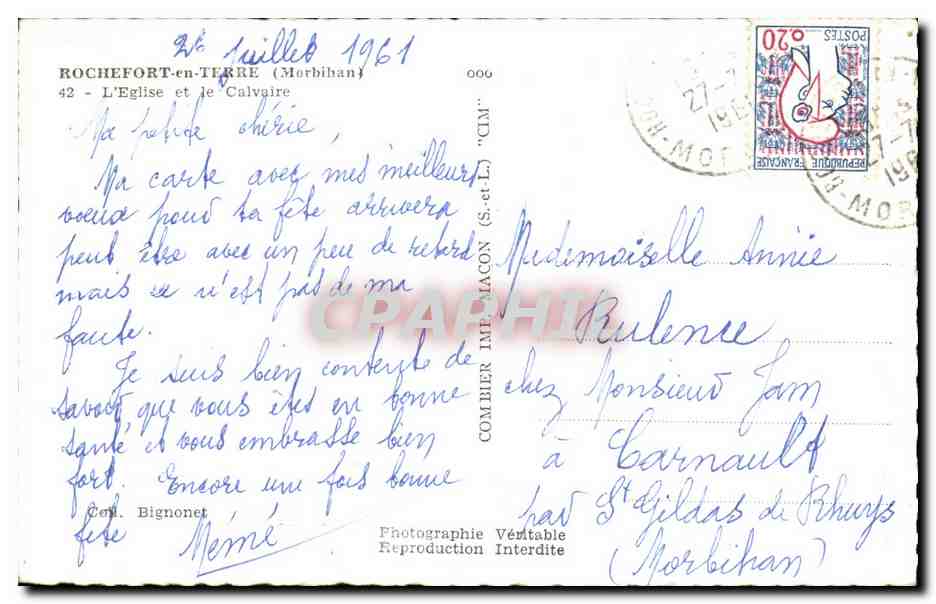 Juillet 1961
ROCHEFORT-en-TERRE (Morbihan)
42 - L'Eglise et le Calvaire
Ma petite chérie,
Ma carte avec mes meilleurs
voeux pour ta fête arrivera
peut être avec un peu de retard
mais ce n'est pas de ma
faute.
Je suis bien contente de
savoir que vous êtes en bonne
santé et vous embrasse bien
fort. Encore une fois bonne
fête
Mémé
Coll. Bignonet
000
COMBIER IMP. MACON (S.-et-L.) "CIM"
Photographie Véritable
Reproduction Interdite
0,20
POSTES
REPUBLIQUE FRANCAISE
27-7
196
MOR
27-7
196
MOR
Mademoiselle Annie
Rulence
chez Monsieur Jam
à Carnault
par St Gildas de Rhuys
(Morbihan)
CPAPHIL